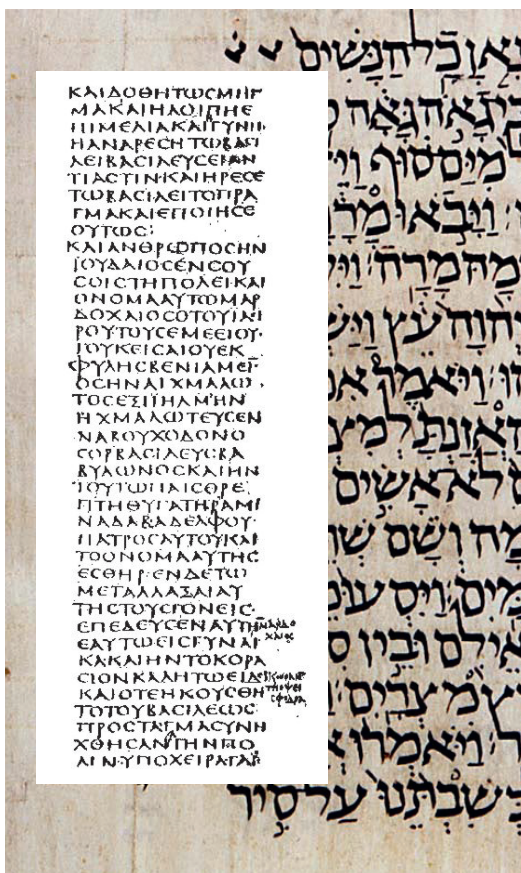 ΚΑΙΔΟΘΗΤΩΣΜΗΓ
ΜΑΚΑΙΗΛΟΙΠΗΕ
ΠΙΜΕΛΙΑΚΑΙΓΥΝΗ
ΗΑΝΑΡΕΣΗΤΩΒΑΣΙ
ΛΕΙΒΑΣΙΛΕΥΣΕΙΑΝ
ΤΙΑΣΤΙΝ·ΚΑΙΗΡΕΣΕ
ΤΩΒΑΣΙΛΕΙΤΟΠΡΑ
ΓΜΑΚΑΙΕΠΟΙΗΣΕ
ΟΥΤΩΣ:
ΚΑΙΑΝΘΡΩΠΟΣΗΝ
ΙΟΥΔΑΙΟΣΕΝΣΟΥ
ΣΟΙΣΤΗΠΟΛΕΙ·ΚΑΙ
ΟΝΟΜΑΑΥΤΩΜΑΡ
ΔΟΧΑΙΟΣΟΤΟΥΙΑΕΙ
ΡΟΥΤΟΥΣΕΜΕΕΙΟΥ·
ΤΟΥΚΕΙΣΑΙΟΥΕΚ
ΦΥΛΗΣΒΕΝΙΑΜΕΙ
ΟΣΗΝΑΙΧΜΑΛΩ
ΤΟΣΕΞΙΛΗΜΗΝ
ΗΧΜΑΛΩΤΕΥΣΕΝ
ΝΑΒΟΥΧΟΔΟΝΟ
ΣΟΡΒΑΣΙΛΕΥΣΒΑ
ΒΥΛΩΝΟΣΚΑΙΗΝ
ΤΟΥΤΩΠΑΙΣΘΡΕ
ΠΤΗΘΥΓΑΤΗΡΑΜΙ
ΝΑΔΑΒΑΔΕΛΦΟΥ·
ΠΑΤΡΟΣΑΥΤΟΥΚΑΙ
ΤΟΟΝΟΜΑΑΥΤΗΣ
ΕΣΘΗΡ·ΕΝΔΕΤΩ
ΜΕΤΑΛΛΑΞΑΙΑΥ
ΤΗΣΤΟΥΣΓΟΝΕΙΣ·
ΕΠΕΔΕΥΣΕΝΑΥΤΗ
ΕΑΥΤΩΕΙΣΓΥΝΑΙ
ΚΑΚΑΙΗΝΤΟΚΟΡΑ
ΣΙΟΝΚΑΛΗΤΩΕΙΔΕΙ
ΚΑΙΟΤΕΗΚΟΥΣΘΗ
ΤΟΤΟΥΒΑΣΙΛΕΩΣ·
ΠΡΟΣΤΑΓΜΑΣΥΝΗ
ΧΘΗΣΑΝΤΗΝΠΟ
ΛΙΝ·ΥΠΟΧΕΙΡΑΓΑΙ
כל הנשים
גאה גאה
מים סוף
ויבאו
מרה
יהוה עץ
ויאמר אם
והאזנת
לא אשים
ושם
מים ויסעו
אילם ובין
מצרים
ויאמרו
בשבתנו על סיר